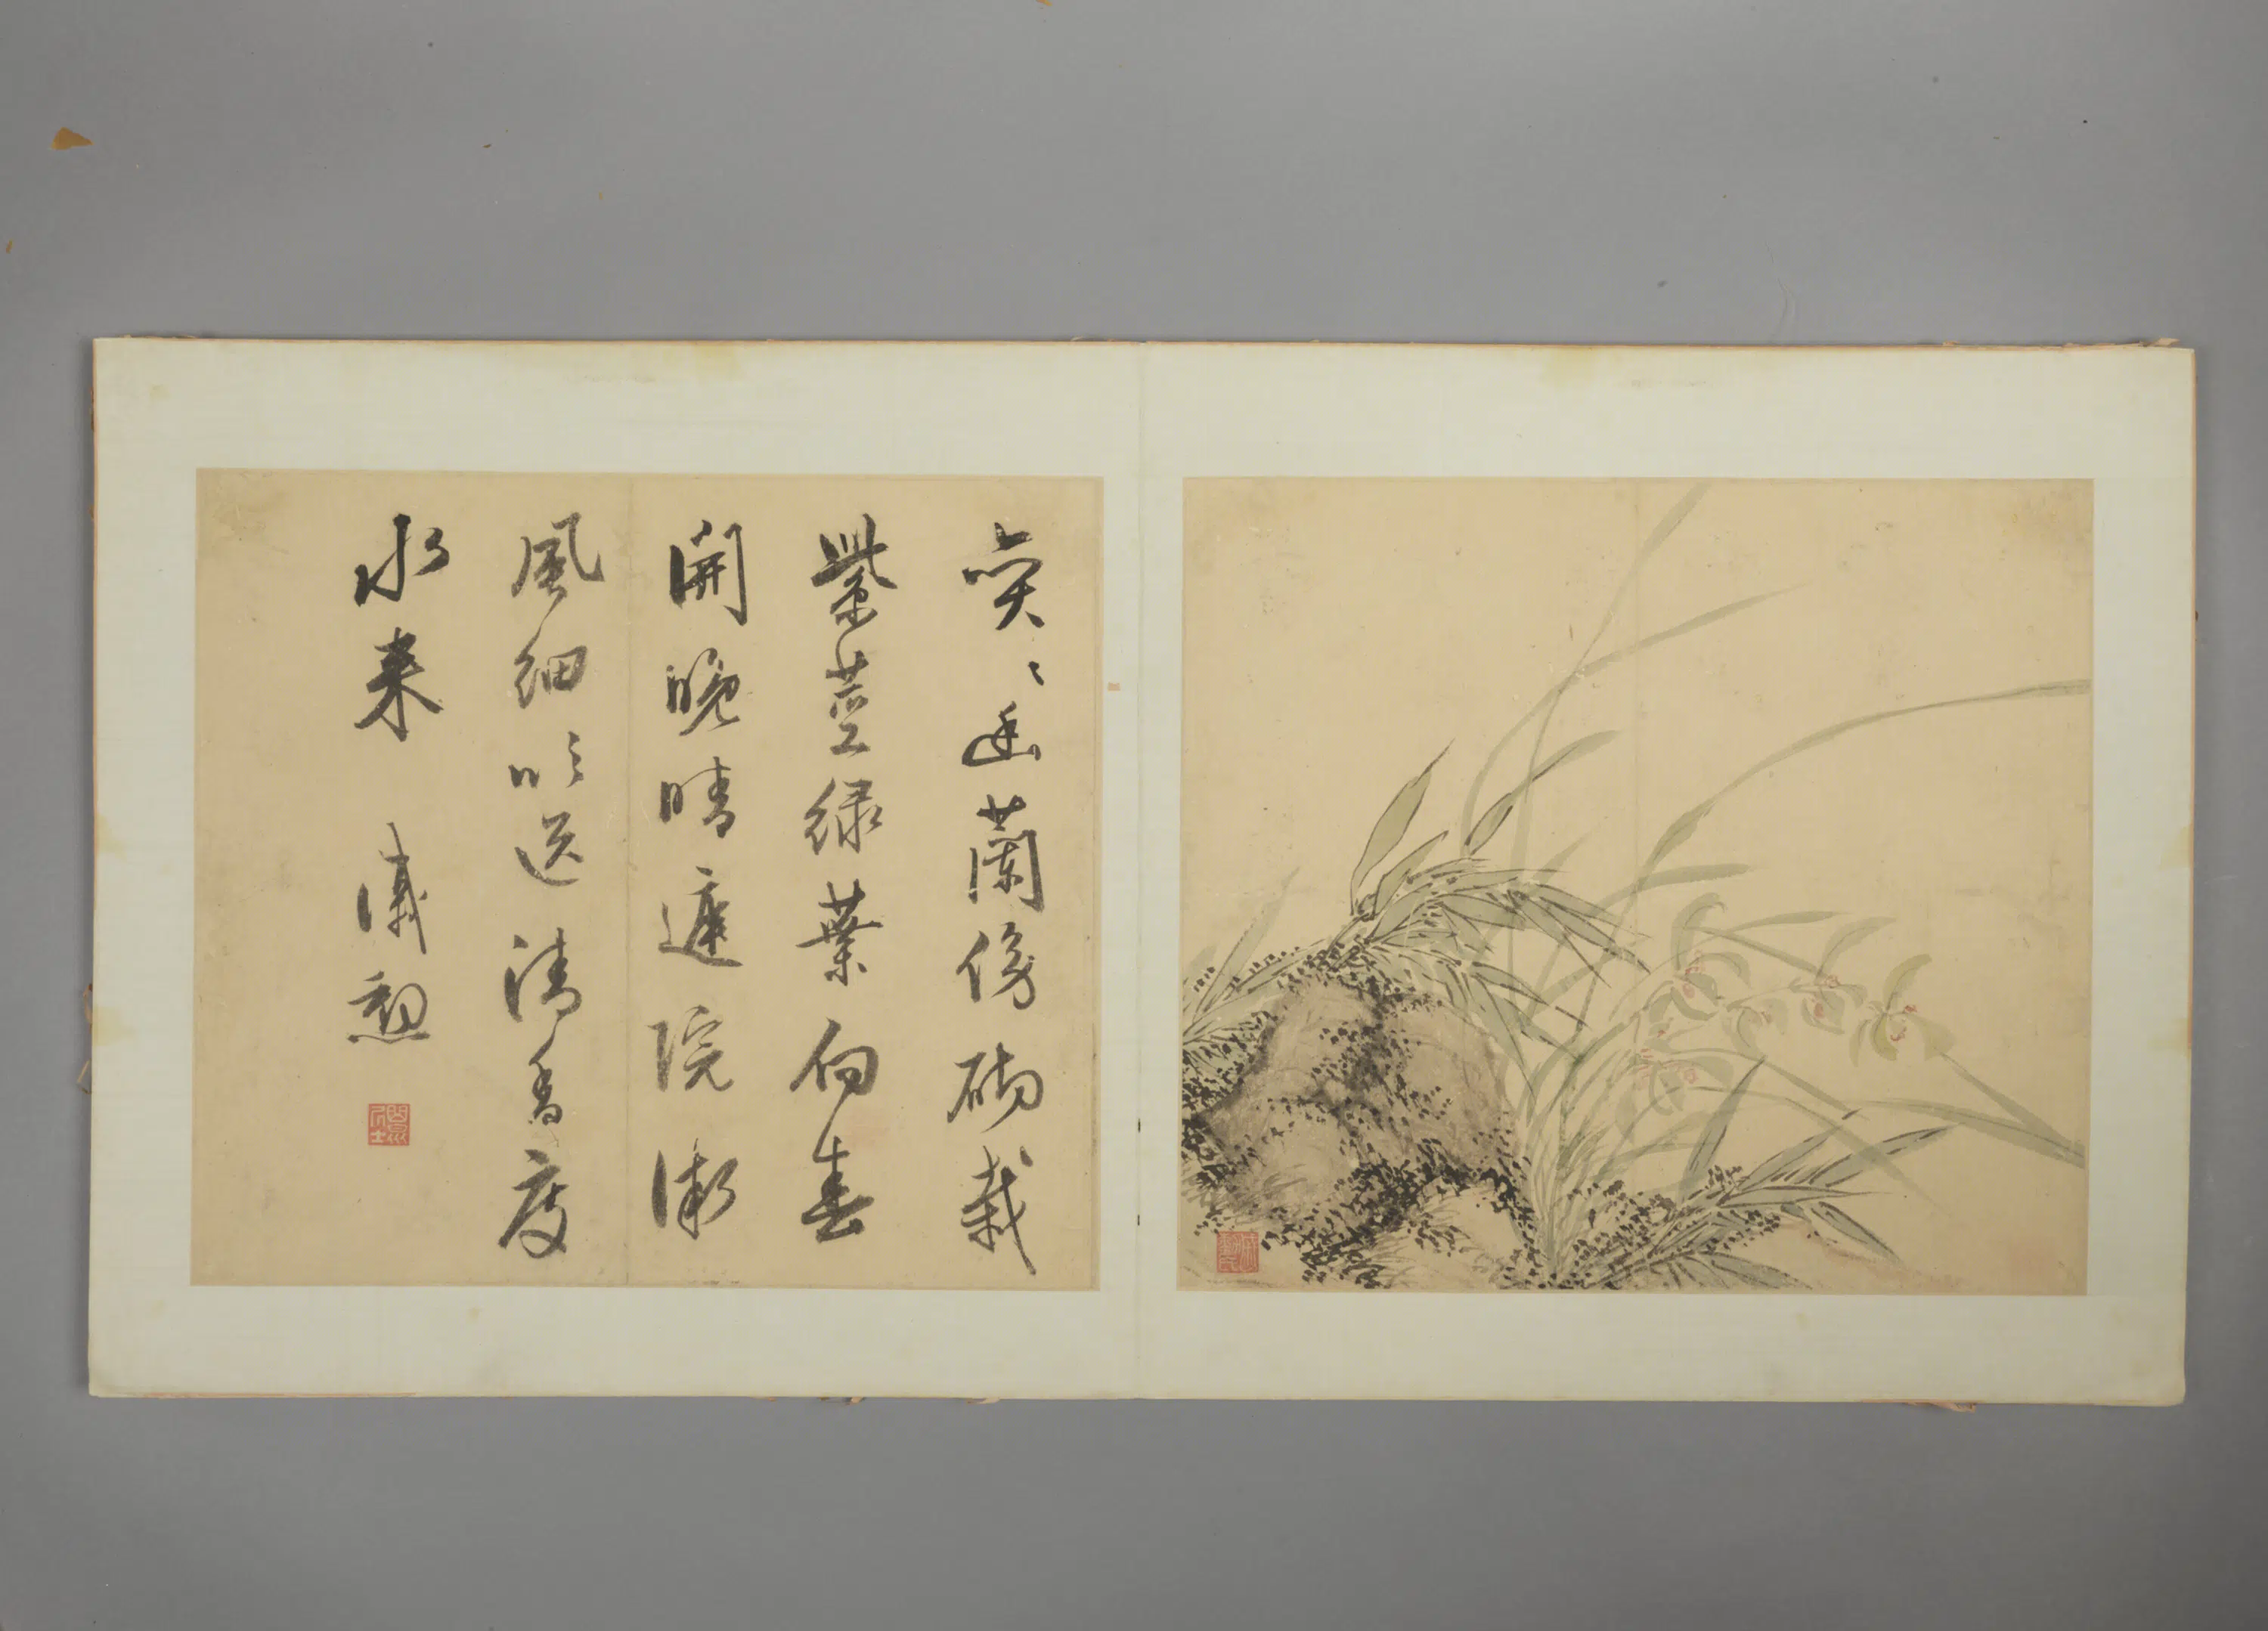 奕〻幽蘭傍砌栽
紫莖綠葉向春
開晚晴庭院微
風細吹送清香度
水来